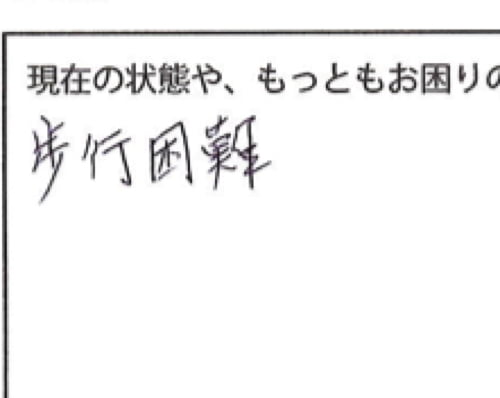 現在の状態や、もっともお困りの
歩行困難